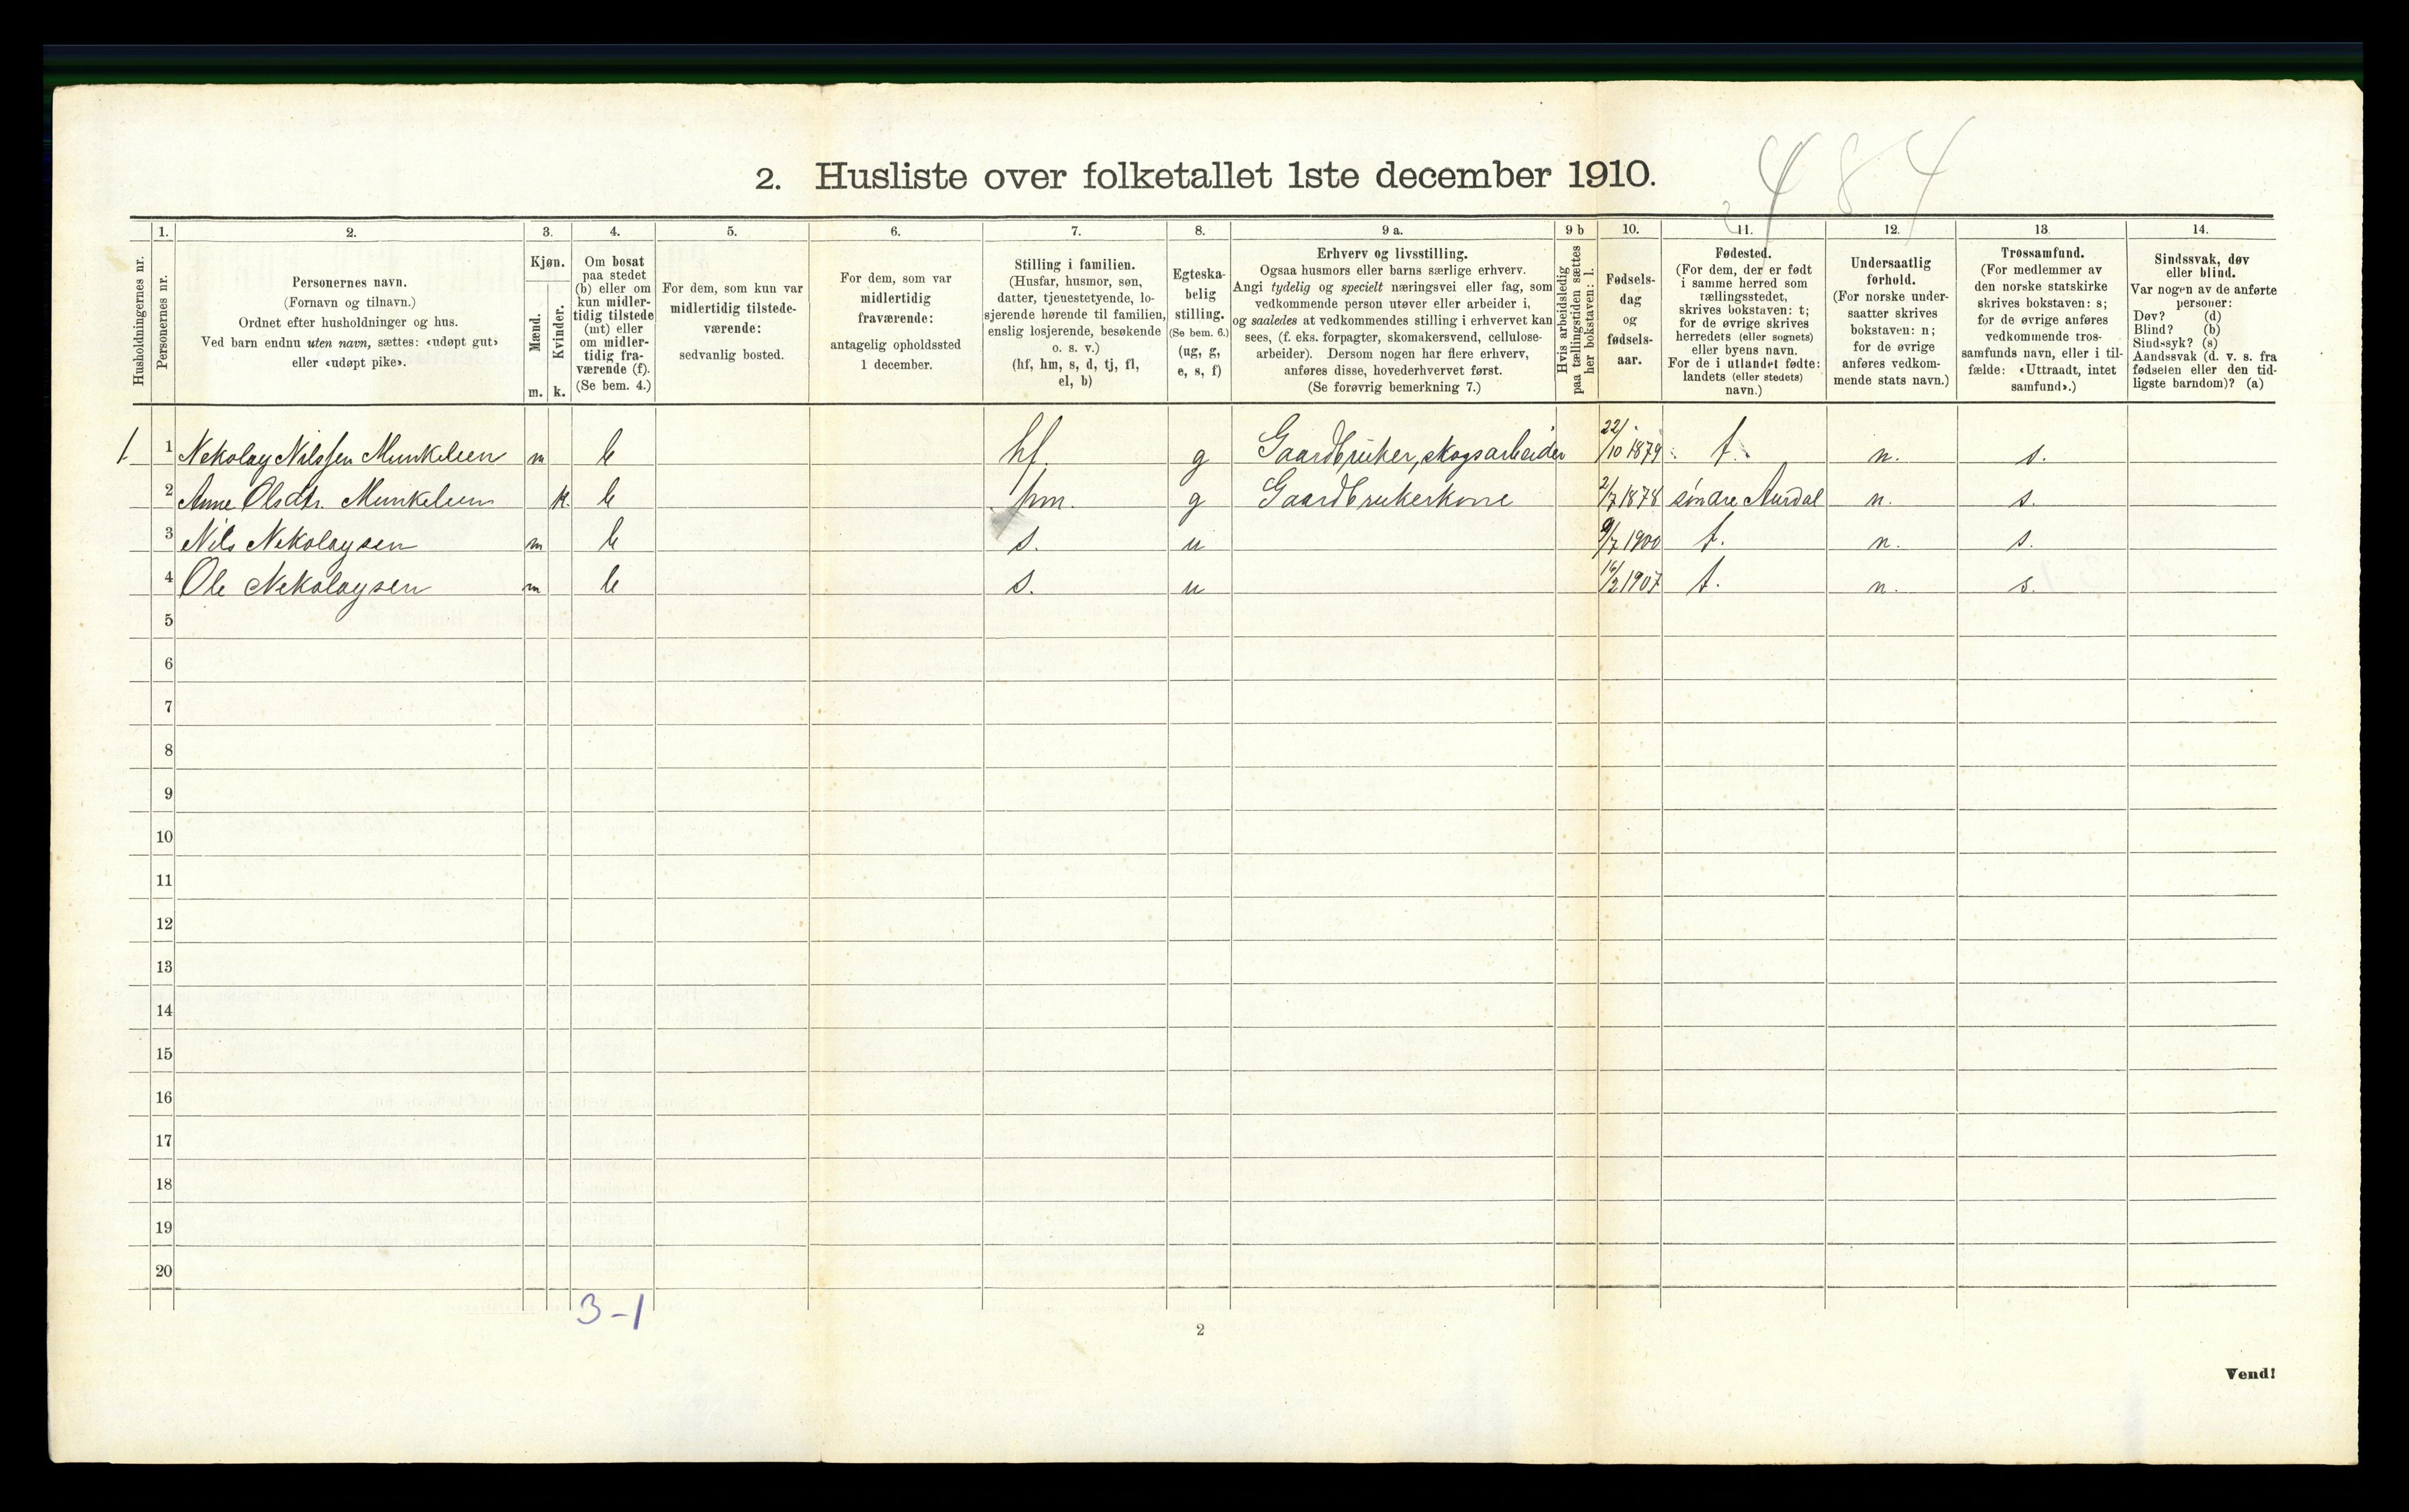 484
2. Husliste over folketallet 1ste december 1910.
Husholdningernes nr.
1.
Personernes nr.
2.
Personernes navn.
(Fornavn og tilnavn.)
Ordnet efter husholdninger og hus.
Ved barn endnu uten navn, sættes: «udøpt gut»
eller «udøpt pike».
3.
Kjøn.
Mænd.
Kvinder.
m. k.
4.
Om bosat
paa stedet
(b) eller om
kun midler-
tidig tilstede
(mt) eller
om midler-
tidig fra-
værende (f).
(Se bem. 4.)
5.
For dem, som kun var
midlertidig tilstede-
værende:
sedvanlig bosted.
6.
For dem, som var
midlertidig
fraværende:
antagelig opholdssted
1 december.
7.
Stilling i familien.
(Husfar, husmor, søn,
datter, tjenestetyende, lo-
sjerende hørende til familien,
enslig losjerende, besøkende
o. s. v.)
(hf, hm, s, d, tj, fl,
el, b)
8.
Egteska-
belig
stilling.
(Se bem. 6.)
(ug, g,
e, s, f)
9 a.
Erhverv og livsstilling.
Ogsaa husmors eller barns særlige erhverv.
Angi tydelig og specielt næringsvei eller fag, som
vedkommende person utøver eller arbeider i,
og saaledes at vedkommendes stilling i erhvervet kan
sees, (f. eks. forpagter, skomakersvend, cellulose-
arbeider). Dersom nogen har flere erhverv,
anføres disse, hovederhvervet først.
(Se forøvrig bemerkning 7.)
9 b
Hvis arbeidsledig
paa tællingstiden sættes
her bokstaven: l.
10.
Fødsels-
dag
og
fødsels-
aar.
11.
Fødested.
(For dem, der er født
i samme herred som
tællingsstedet,
skrives bokstaven: t;
for de øvrige skrives
herredets (eller sognets)
eller byens navn.
For de i utlandet fødte:
landets (eller stedets)
navn.)
12.
Undersaatlig
forhold.
(For norske under-
saatter skrives
bokstaven: n;
for de øvrige
anføres vedkom-
mende stats navn.)
13.
Trossamfund.
(For medlemmer av
den norske statskirke
skrives bokstaven: s;
for de øvrige anføres
vedkommende tros-
samfunds navn, eller i til-
fælde: «Uttraadt, intet
samfund».)
14.
Sindssvak, døv
eller blind.
Var nogen av de anførte
personer:
Døv? (d)
Blind? (b)
Sindssyk? (s)
Aandssvak (d. v. s. fra
fødselen eller den tid-
ligste barndom)? (a)
1 1 Nekolay Nilssen Munkelien m b hf. g Gaardbruker, skogsarbeider 22/10 1879 t. n. s.
2 Anne Olsdtr. Munkelien k. b hm. g Gaardbrukerkone 2/7 1878 søndre Aurdal n. s.
3 Nils Nekolaysen m b s. u 9/7 1900 t. n. s.
4 Ole Nekolaysen m b s. u 16/2 1907 t. n. s.
5
6
7
8
9
10
11
12
13
14
15
16
17
18
19
20
3-1
2
Vend!